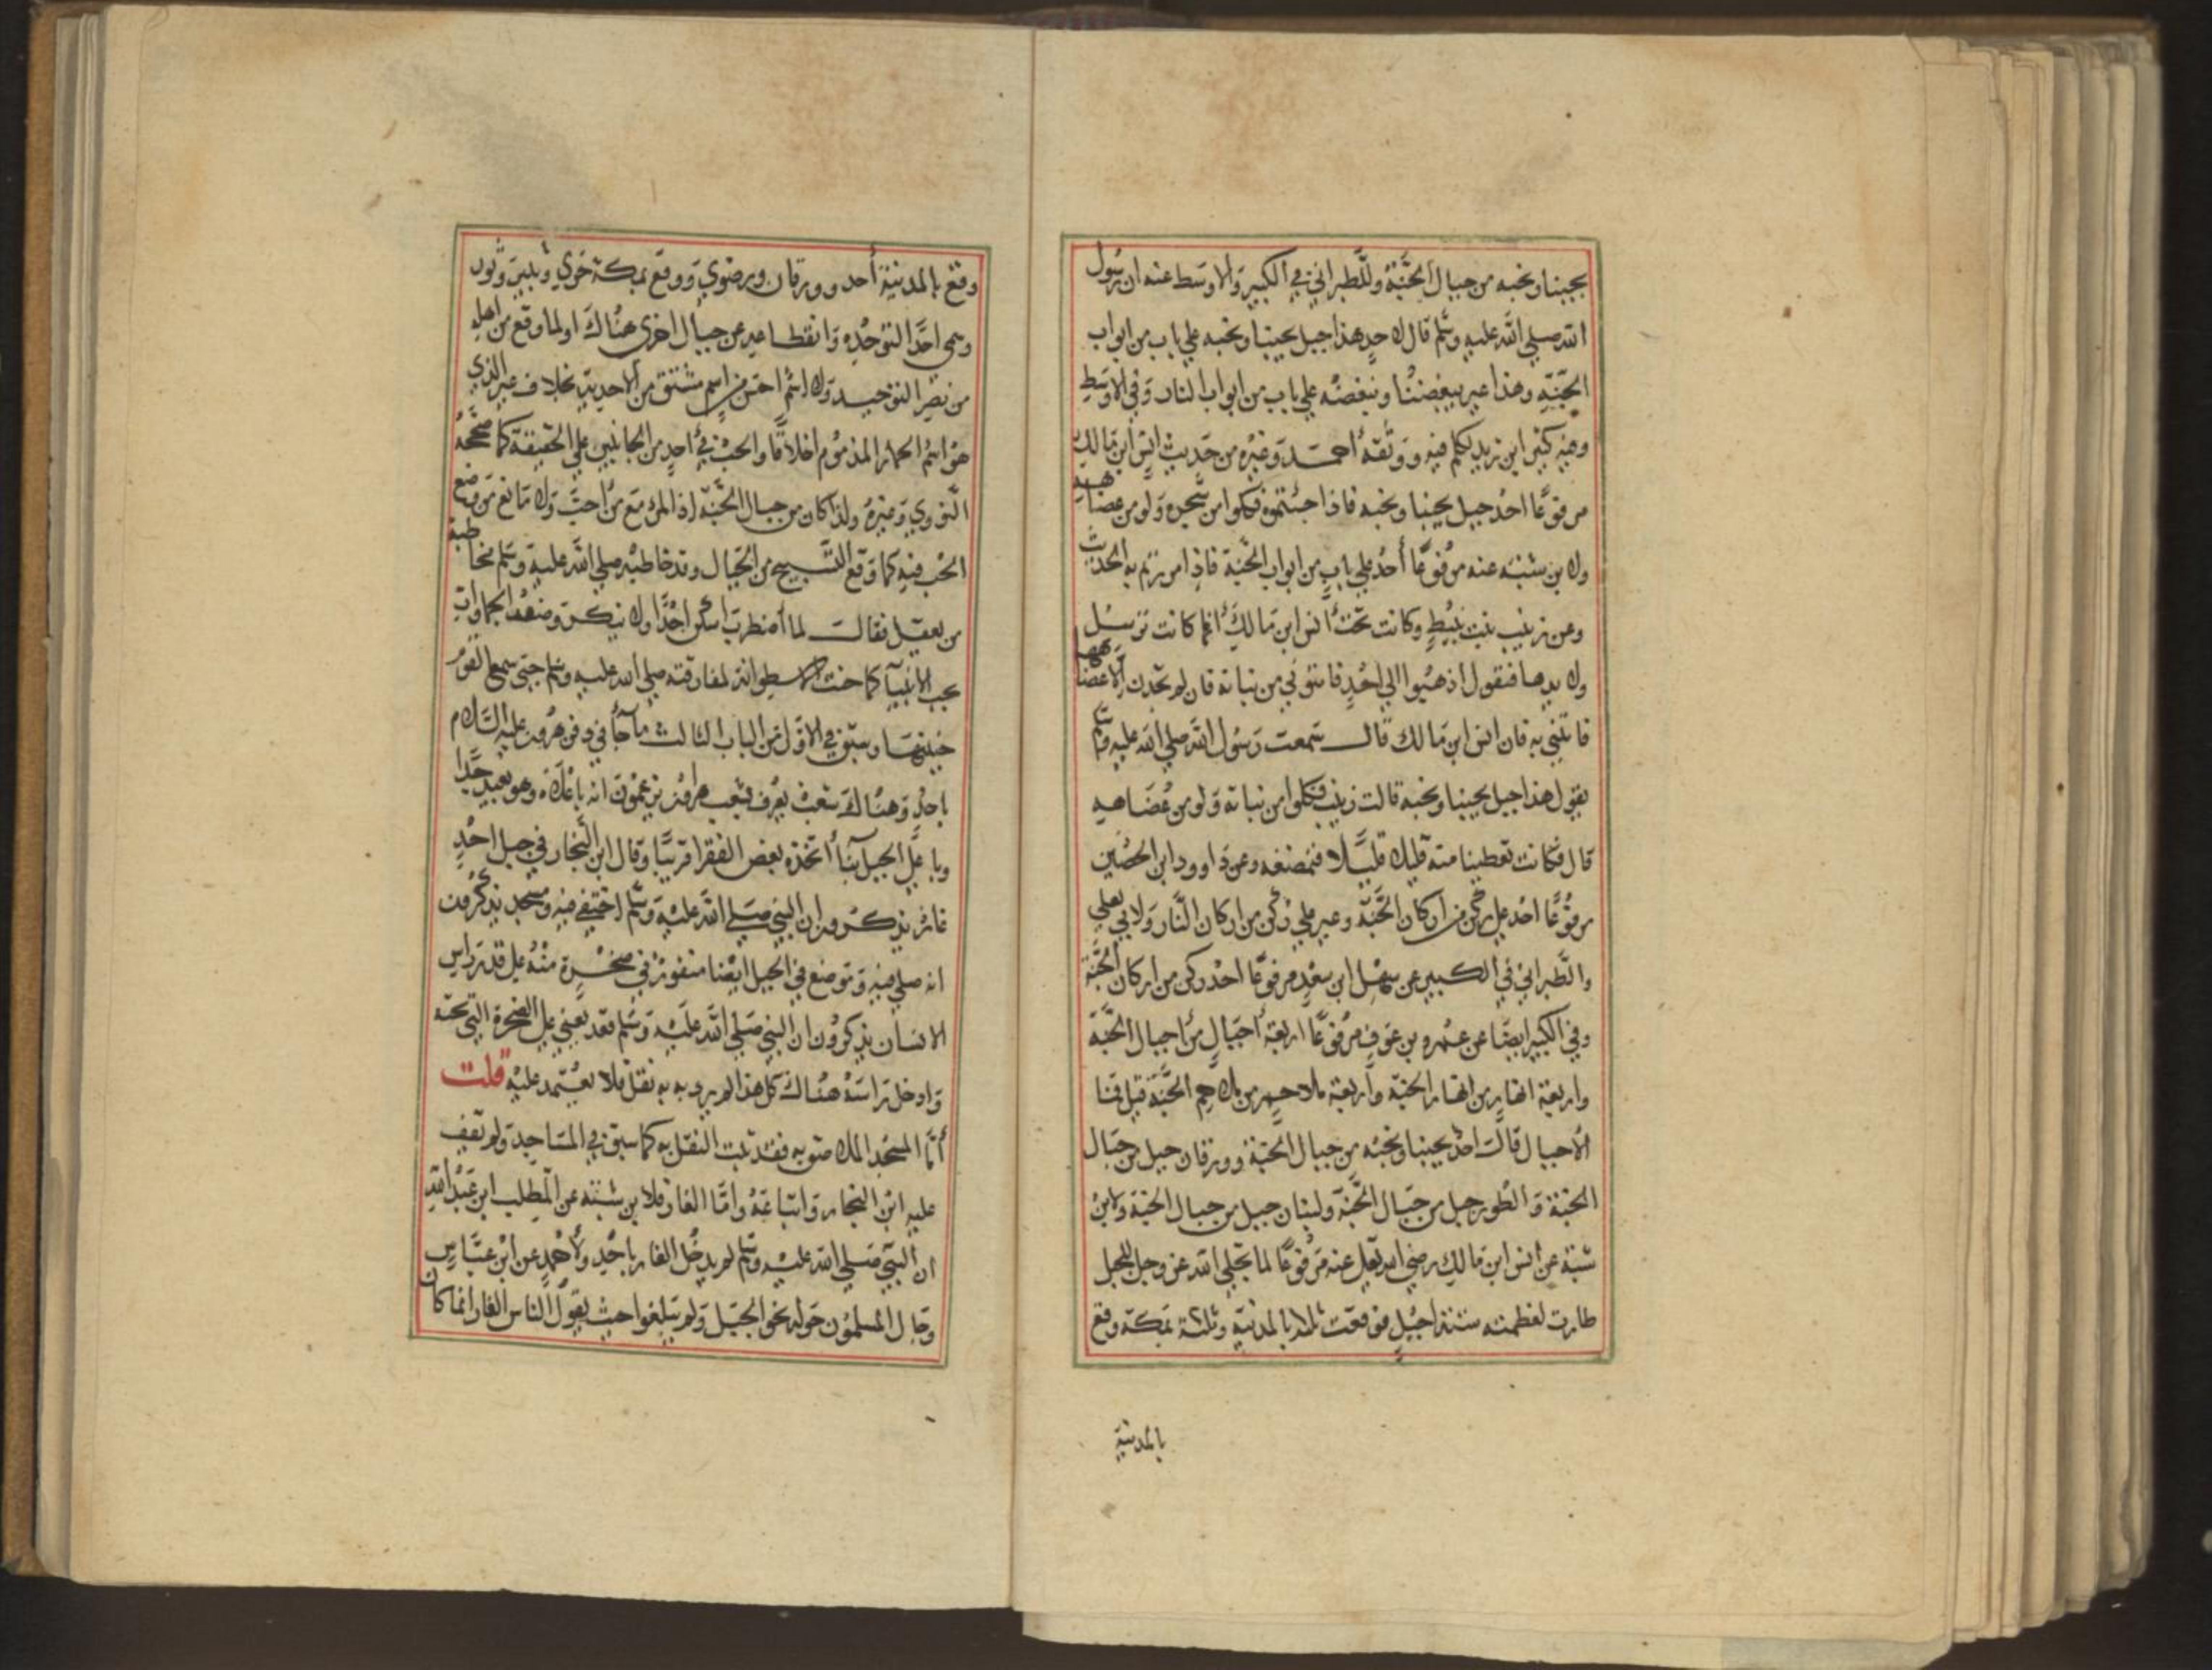 يحبنا ونحبه من جبال الجنة وللطبراني في الكبير والاوسط عنه ان رسول
الله صلي الله عليه وسلم قال لاحد هذا جبل يحبنا ونحبه علي باب من ابواب
الجنة وهذا عير يبغضنا ونبغضه علي باب من ابواب النار وفي الاوسط
وفيه كثير ابن زيد تكلم فيه ووثقه أحمد وغيره من حديث انس ابن مالك
مرفوعا احد جبل يحبنا ونحبه فاذا جئتموه فكلوا من شجره ولو من عضاهه
ولابن شبه عنه مرفوعا أحد علي باب من ابواب الجنة فاذا مررتم به الحديث
وعن زينب بنت نبيط وكانت تحت أنس ابن مالك انها كانت ترسل
ولايدها فتقول اذهبوا الي احد فاتوني من نباته فان لم تجدن الا عضاها
فاتنني به فان انس ابن مالك قال سمعت رسول الله صلي الله عليه وسلم
يقول هذا جبل يحبنا ونحبه قالت زينب فكلوا من نباته ولو من عضاهه
قال فكانت تعطينا منه قليلا قليلا فنمضغه وعن داوود ابن الحصين
مرفوعا احد علي ركن من اركان الجنة وعير علي ركن من اركان النار ولابي يعلي
والطبراني في الكبير عن سهل ابن سعد مرفوعا احد ركن من اركان الجنة
وفي الكبير ايضا عن عمرو بن عوف مرفوعا اربعة أجبال من اجبال الجنة
واربعة انهار من انهار الجنة واربعة ملاحم من ملاحم الجنة قيل فما
الأجبال قال احد يحبنا ونحبه من جبال الجنة وورقان جبل من جبال
الجنة والطور جبل من جبال الجنة ولبنان جبل من جبال الجنة ولابن
شبة عن انس ابن مالك رضي الله تعلي عنه مرفوعا لما تجلي الله عز وجل للجبل
طارت لعظمته ستة اجبل فوقعت ثلاثة بالمدنية وثلثة بمكة وقع
بالمدنية
وقع بالمدنية أحد وورقان ورضوي ووقع بمكة حري وثبير وثور
وسمي احدا لتوحده وانقطاعه عن جبال اخري هناك او لما وقع من اهله
من نصر التوحيد ولا اسم احسن من اسم مشتق من الاحدية بخلاف عير الذي
هو اسم الحمار المذموم اخلاقا والحب في أحد من الجانبين علي الحقيقة كما صححه
النووي وغيره ولذا كان من جبال الجنة اذ المرء مع من احب ولا مانع من وضع
الحب فيه كما وقع التسبيح من الجبال وقد خاطبه صلي الله عليه وسلم مخاطبة
من يعقل فقال لما اضطرب اسكن احد ولا ينكر وصف الجمادات
بحب الأنبيا كما حنت الاسطوانة لمفارقته صلي الله عليه وسلم حتي سمع القوم
حنينها وسبق في الاول من الباب الثالث ما جأ في دفن هرون عليه السلام
باحد وهناك شعب يعرف بشعب هرون يزعمون انه باعلاه وهو بعيد جدا
وباعلي الجبل بنأ اتخذه بعض الفقرا قريبا وقال ابن النجار في جبل احد
غار يذكرون ان النبي صلي الله عليه وسلم اختفي فيه ومسجد يذكرون
انه صلي فيه وموضع في الجبل ايضا منقور في صخرة منه علي قدر راس
الانسان يذكرون ان النبي صلي الله عليه وسلم قعد يعني علي الصخرة التي تحته
وادخل راسه هناك كل هذا لم يرد به به نقل فلا يعتمد عليه قلت
أما المسجد الملاصق به فقد ثبت النقل به كما سبق في المساجد ولم يقف
عليه ابن النجار واتباعه واما الغار فلابن شبه عن المطلب ابن عبد الله
ان النبي صلي الله عليه وسلم لم يدخل الغار باحد ولأحمد عن ابن عباس
وجال المسلمون جوله نحو الجبل ولم يبلغوا حيث يقول الناس الغار انما كان